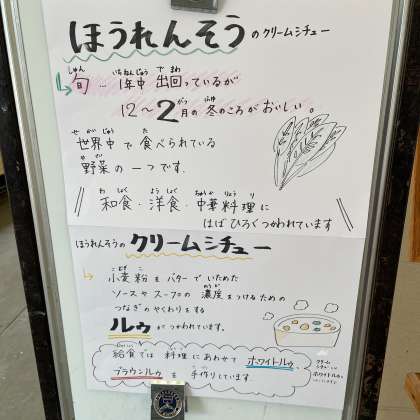 ほうれんそうのクリームシチュー
旬…1年中出回っているが
12～2月の冬のころがおいしい。
世界中で食べられている
野菜の一つです。
和食・洋食・中華料理に
はばひろくつかわれています
ほうれんそうのクリームシチュー
小麦粉をバターでいためた
ソースやスープの濃度をつけるための
つなぎのやくわりをする
ルゥがつかわれています。
給食では料理にあわせてホワイトルゥ、
ブラウンルゥを手作りしています。
クリーム
シチューは
ホワイトルゥ